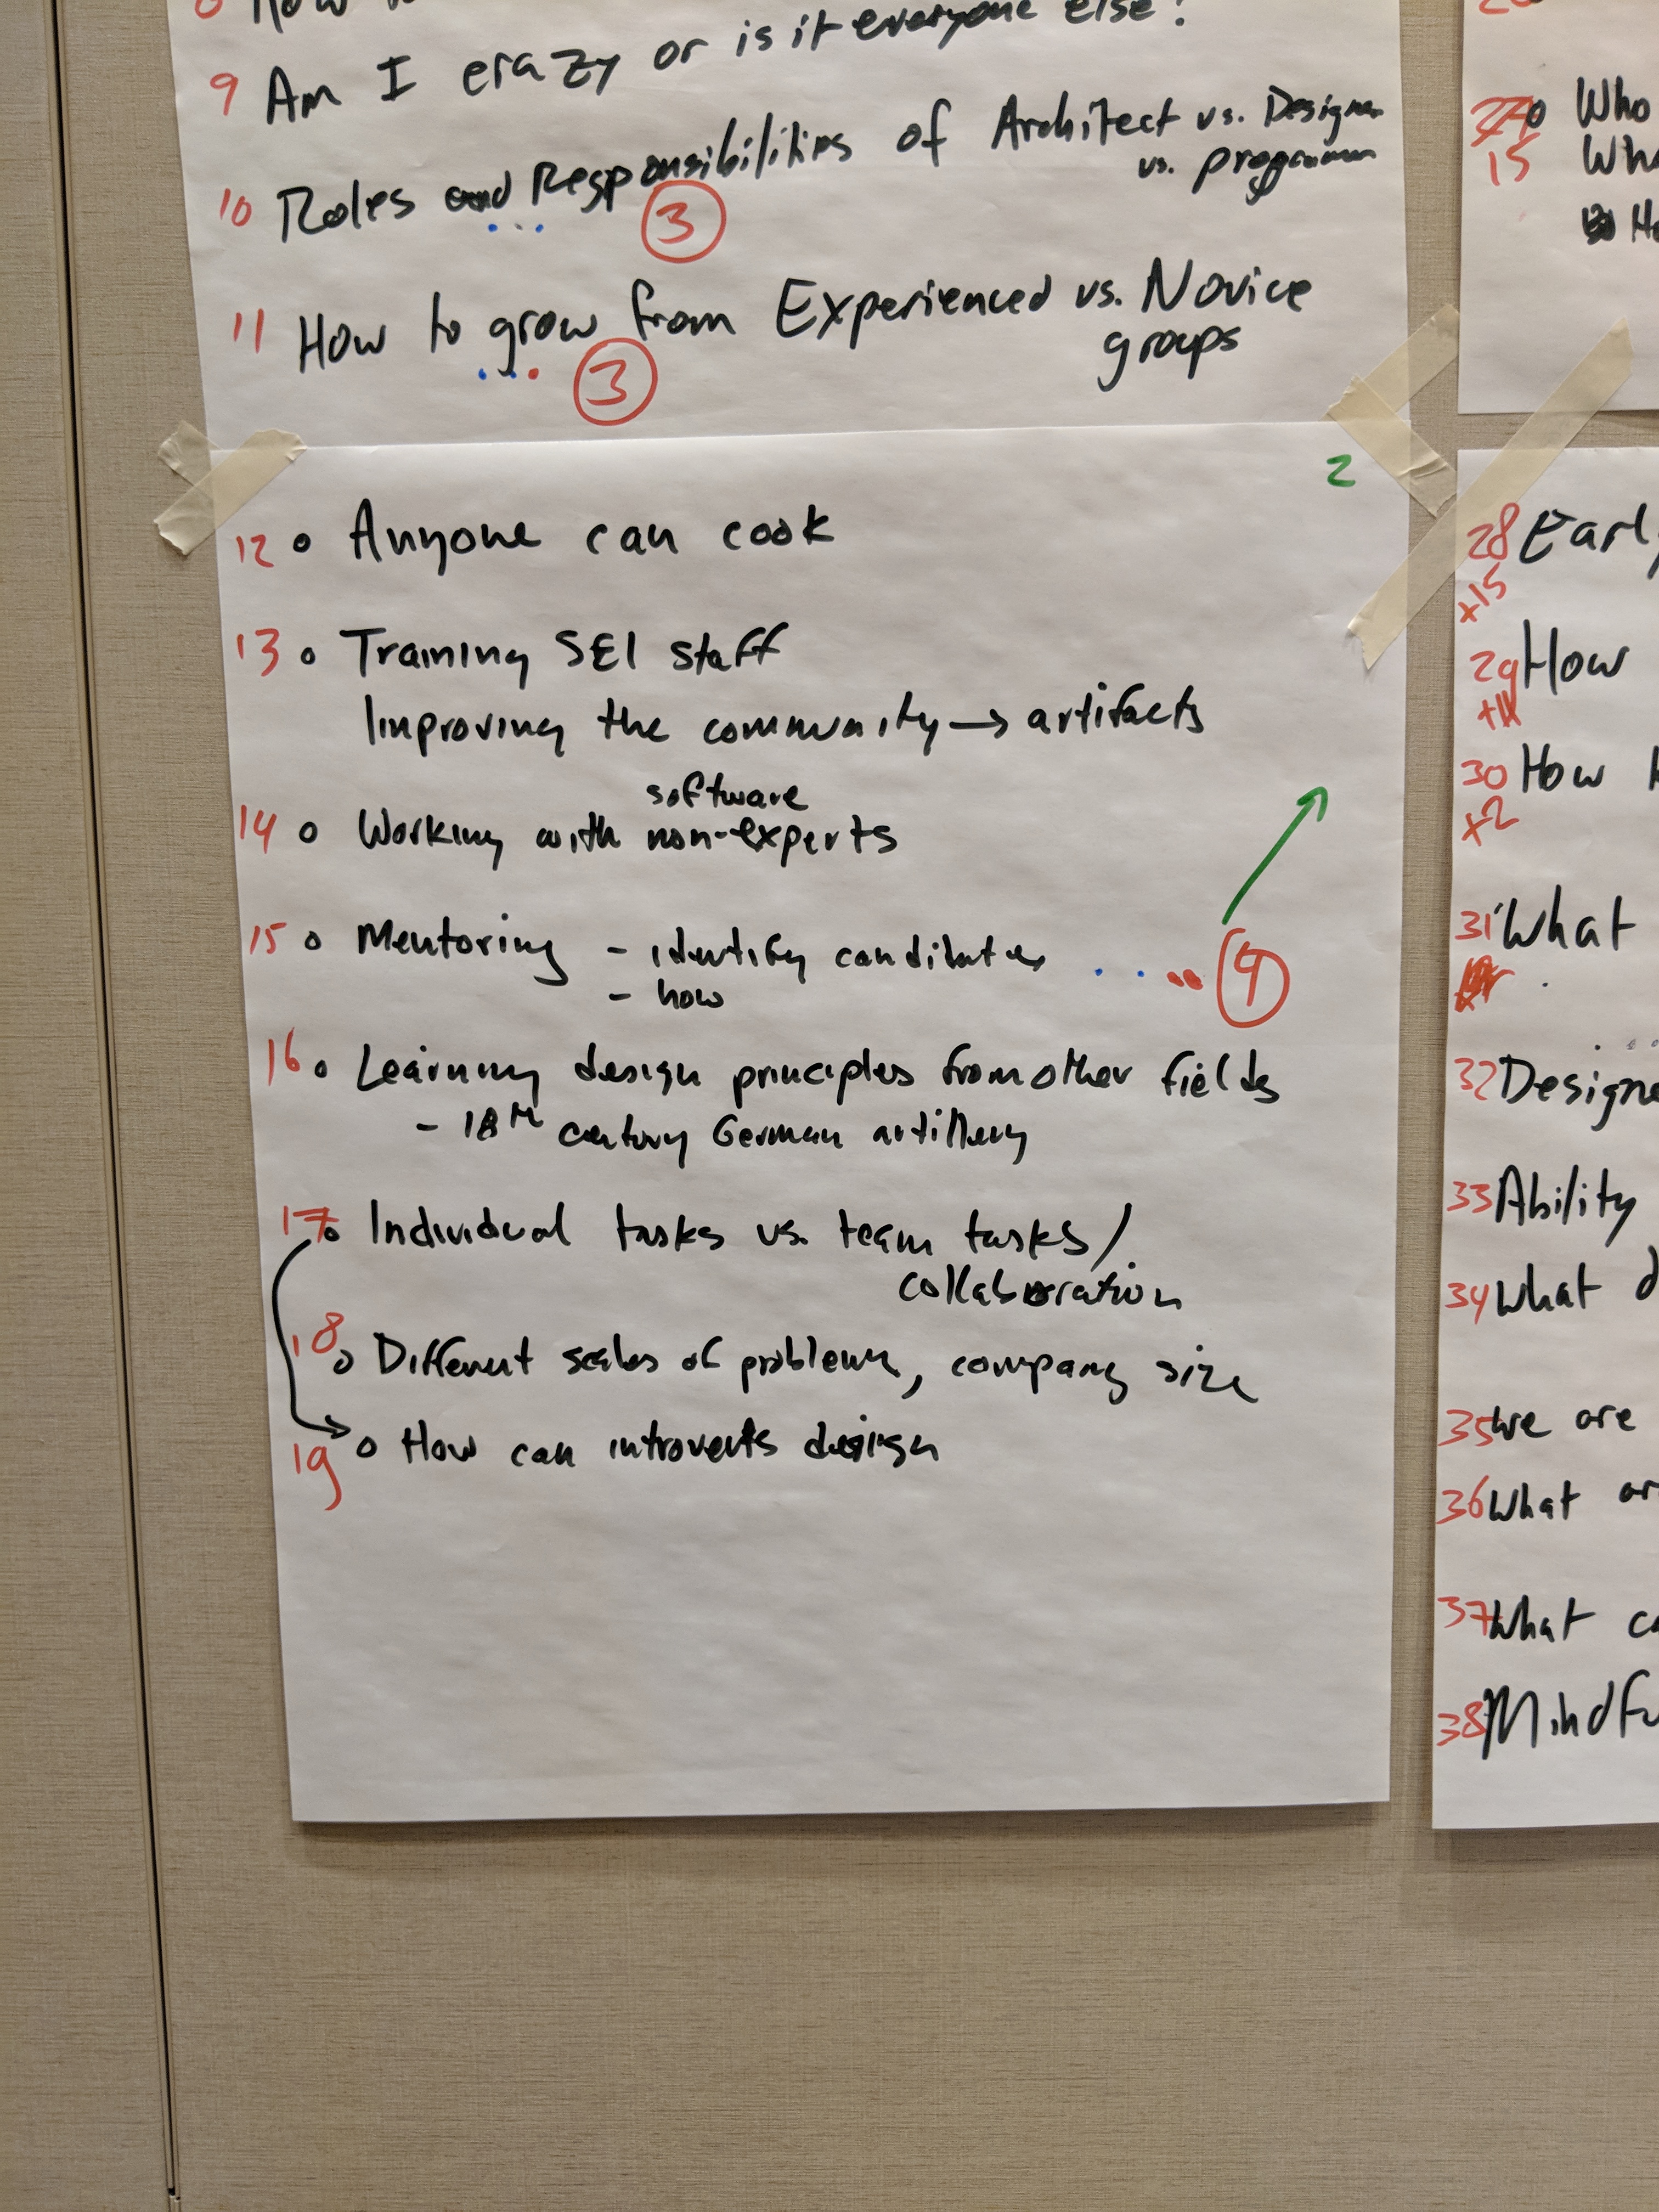 9 Am I crazy or is it everyone else?
10 Roles and Responsibilities of Architect vs. Designer
vs. programmer
3
11 How to grow from Experienced vs. Novice
groups
3
2
12 Anyone can cook
13 Training SEI staff
Improving the community → artifacts
software
14 Working with non-experts
15 Mentoring - identify candidates
- how
4
16 Learning design principles from other fields
- 18th century German artillery
17 Individual tasks vs. team tasks/
collaboration
18 Different scales of problems, company size
19 How can introverts design
Who
15
28
+15
29 How
30 How
+2
31 What
32
33 Ability
34 What
35 we are
36 What
37 What
38